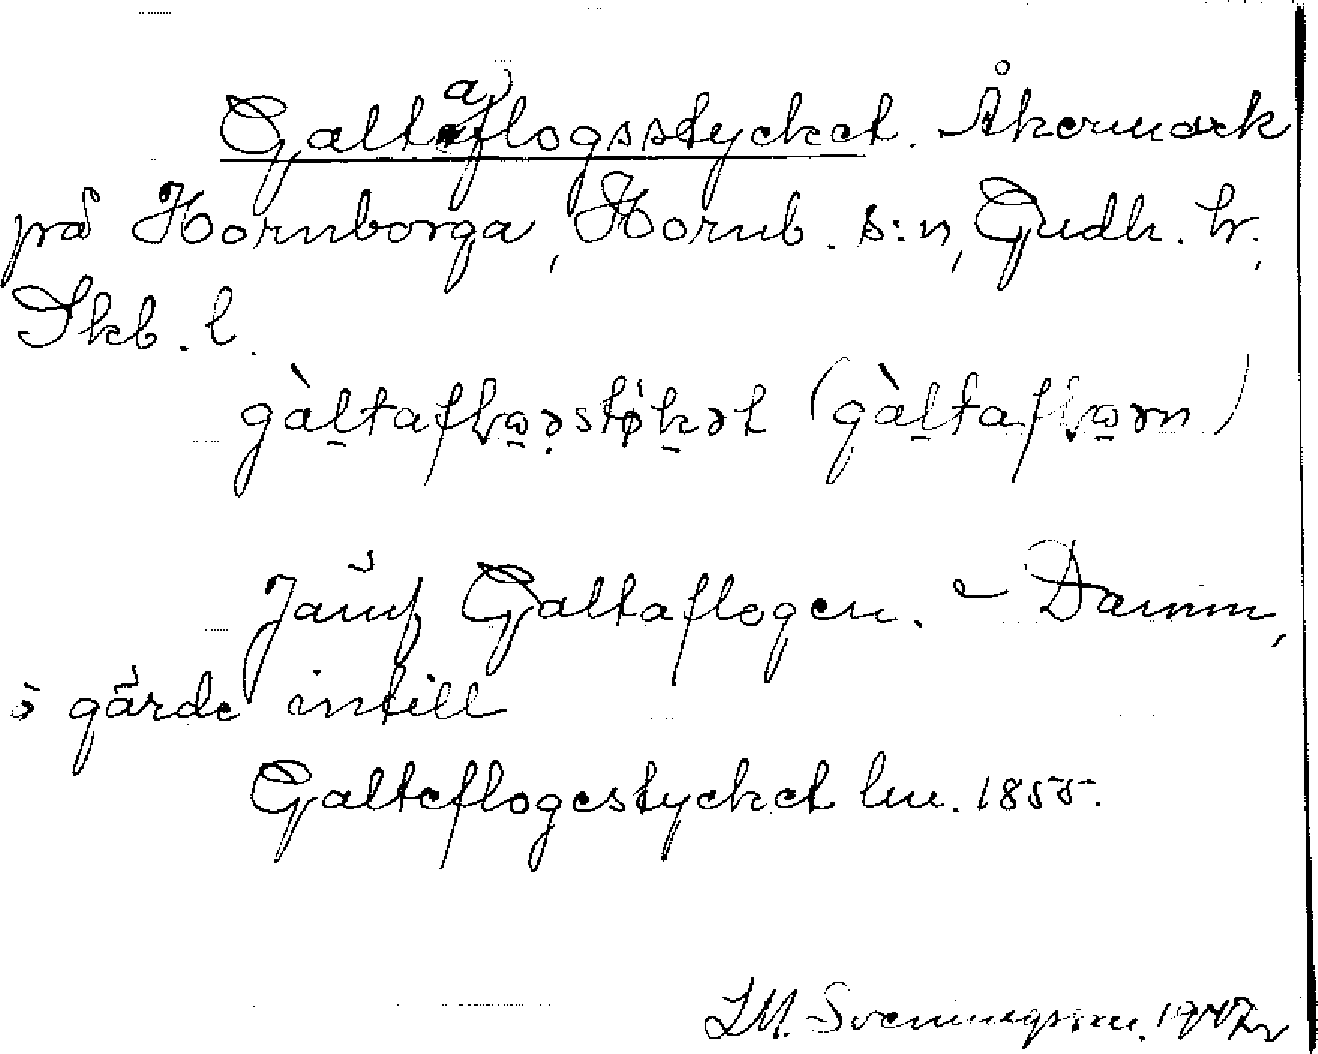 Galtaflogsstycket. Åkermark
på Hornborga, Hornb. s:n, Gudh. hr,
Skb. l.
gàltafloəstøkət (gàltafloən)
Jämf Galtaflogen. – Damm,
i gärde intill
Galteflogestycket lm. 1855.
SM. Svenningsson. 1947